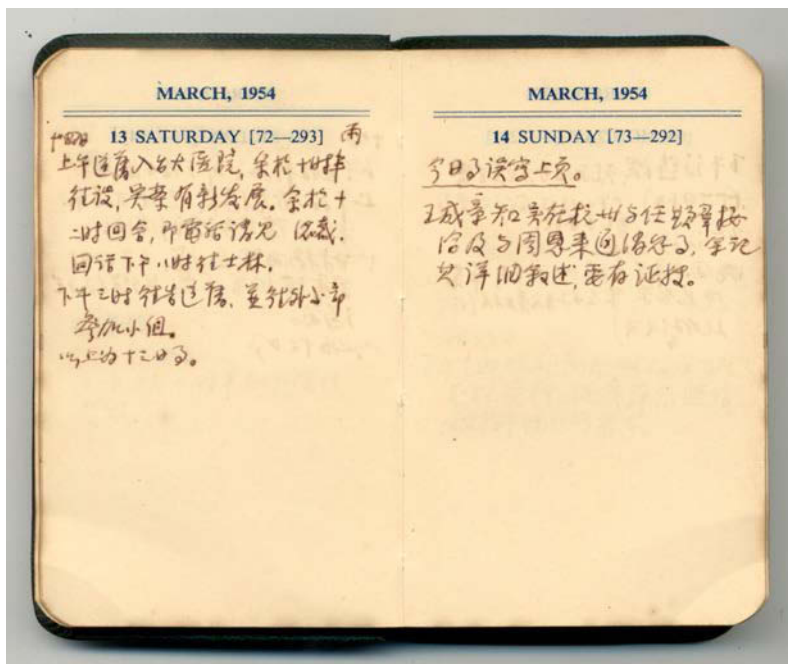 MARCH, 1954
13 SATURDAY [72—293] 雨
上午道藩入台大医院,余於十时半
往谈,吴案有新发展。余於十
二时回舍,即電话请见
回话下午八时往士林。
下午三时往告道藩,並往外交部
参加小组。
以上为十三日事。
MARCH, 1954
14 SUNDAY [73—292]
今日事误写上页。
王成章知吴在杭州与任顯羣接
洽及与周恩来通消息事,余记
其详细叙述,要有证据。